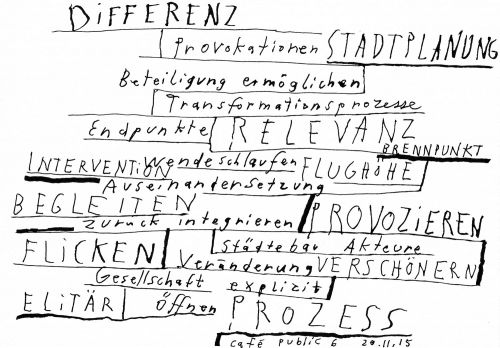 DiFFERENZ
Provokationen STADTPLANUNG
Beteiligung ermöglichen
Transformationsprozesse
Endpunkte RELEVANZ
BRENNPUNKT
INTERVENTION Wendeschlaufen FLUGHÖHE
Auseinandersetzung
BEGLEITEN
zurück integrieren PROVOZIEREN
FLiCKEN Städtebau Akteure
Veränderung VERSCHÖNERN
Gesellschaft explizit
ELITÄR Öffnen PROZESS
café public 6 20.11.15